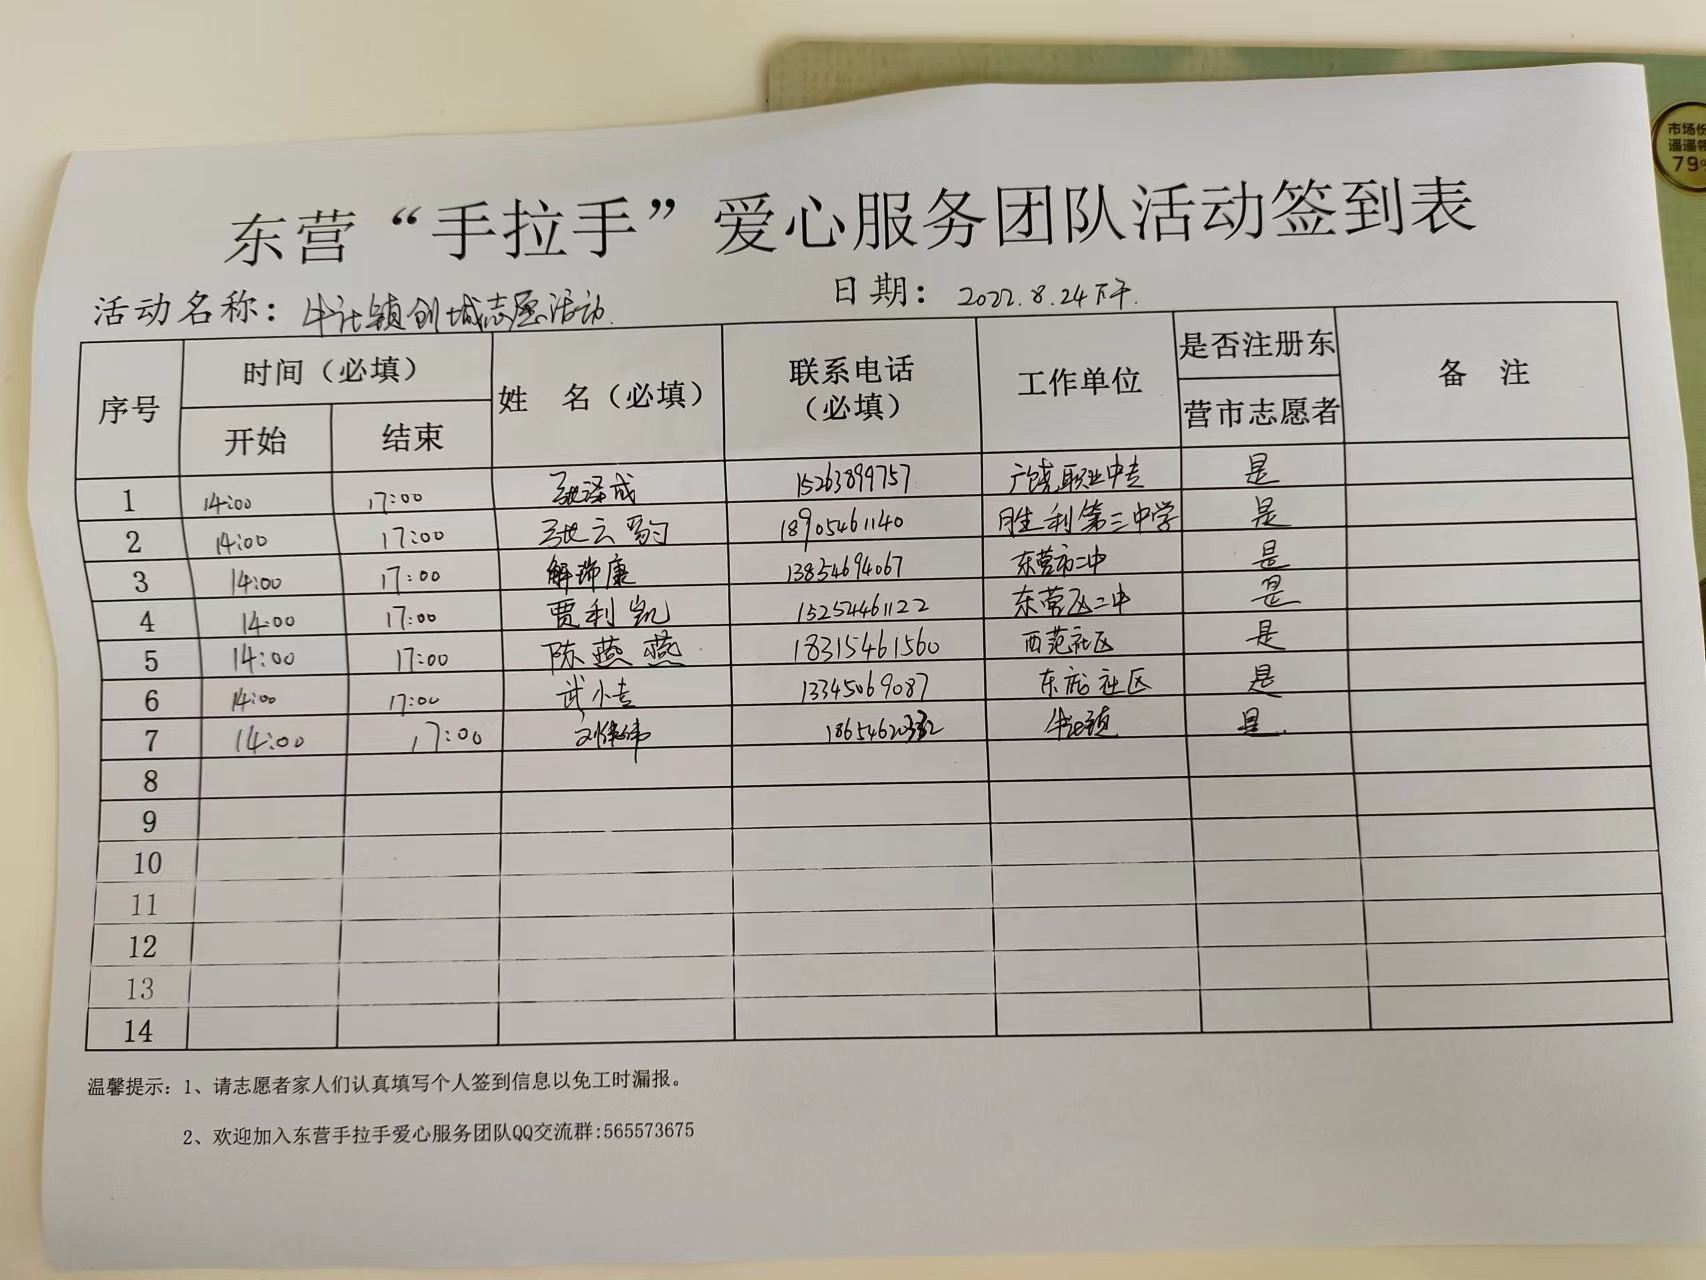 市场份
遥遥领
79%
东营“手拉手”爱心服务团队活动签到表
活动名称：牛社镇创城志愿活动 日期：2022.8.24下午
序号 时间（必填） 姓 名（必填） 联系电话（必填） 工作单位 是否注册东营市志愿者 备 注
开始 结束
1 14:00 17:00 泽成 15263899757 广饶职业中专 是
2 14:00 17:00 云豹 18905461140 胜利第三中学 是
3 14:00 17:00 解沛康 13854694067 东营市二中 是
4 14:00 17:00 贾利凯 15254461122 东营区二中 是
5 14:00 17:00 陈燕燕 18315461560 西范社区 是
6 14:00 17:00 武小专 13345069087 东 社区 是
7 14:00 17:00 刘 18654620332 牛社镇 是
8
9
10
11
12
13
14
温馨提示：1、请志愿者家人们认真填写个人签到信息以免工时漏报。
2、欢迎加入东营手拉手爱心服务团队QQ交流群:565573675